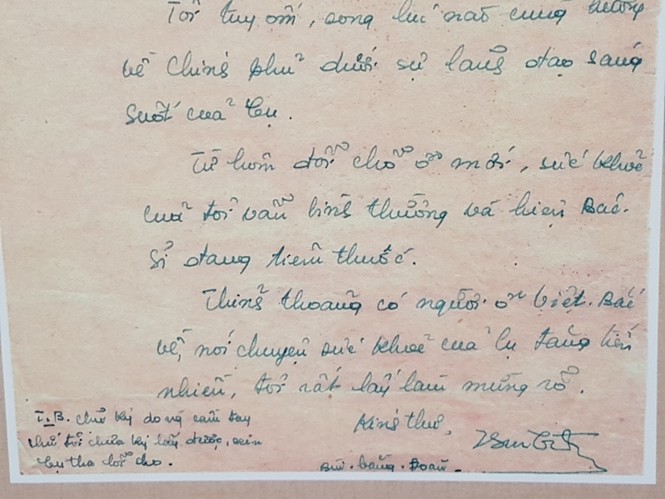 Tôi tuy ốm, song lúc nào cũng hướng
về Chính phủ dưới sự lãnh đạo sáng
suốt của Cụ.
Từ hôm đổi chỗ ở mới, sức khoẻ
của tôi vẫn bình thường và hiện Bác-
sĩ đang tiêm thuốc.
Thỉnh thoảng có người ở Việt-Bắc
về, nói chuyện sức khoẻ của Cụ tăng tiến
nhiều, tôi rất lấy làm mừng rỡ.
Kính thư,
Bùi-Bằng-Đoàn
T.B. Chữ ký do cầm tay
chứ tôi chưa ký lấy được, xin
Cụ tha lỗi cho.